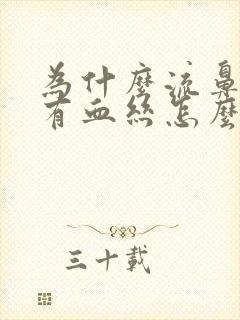 為什麼流鼻
有血絲怎麼
三十載